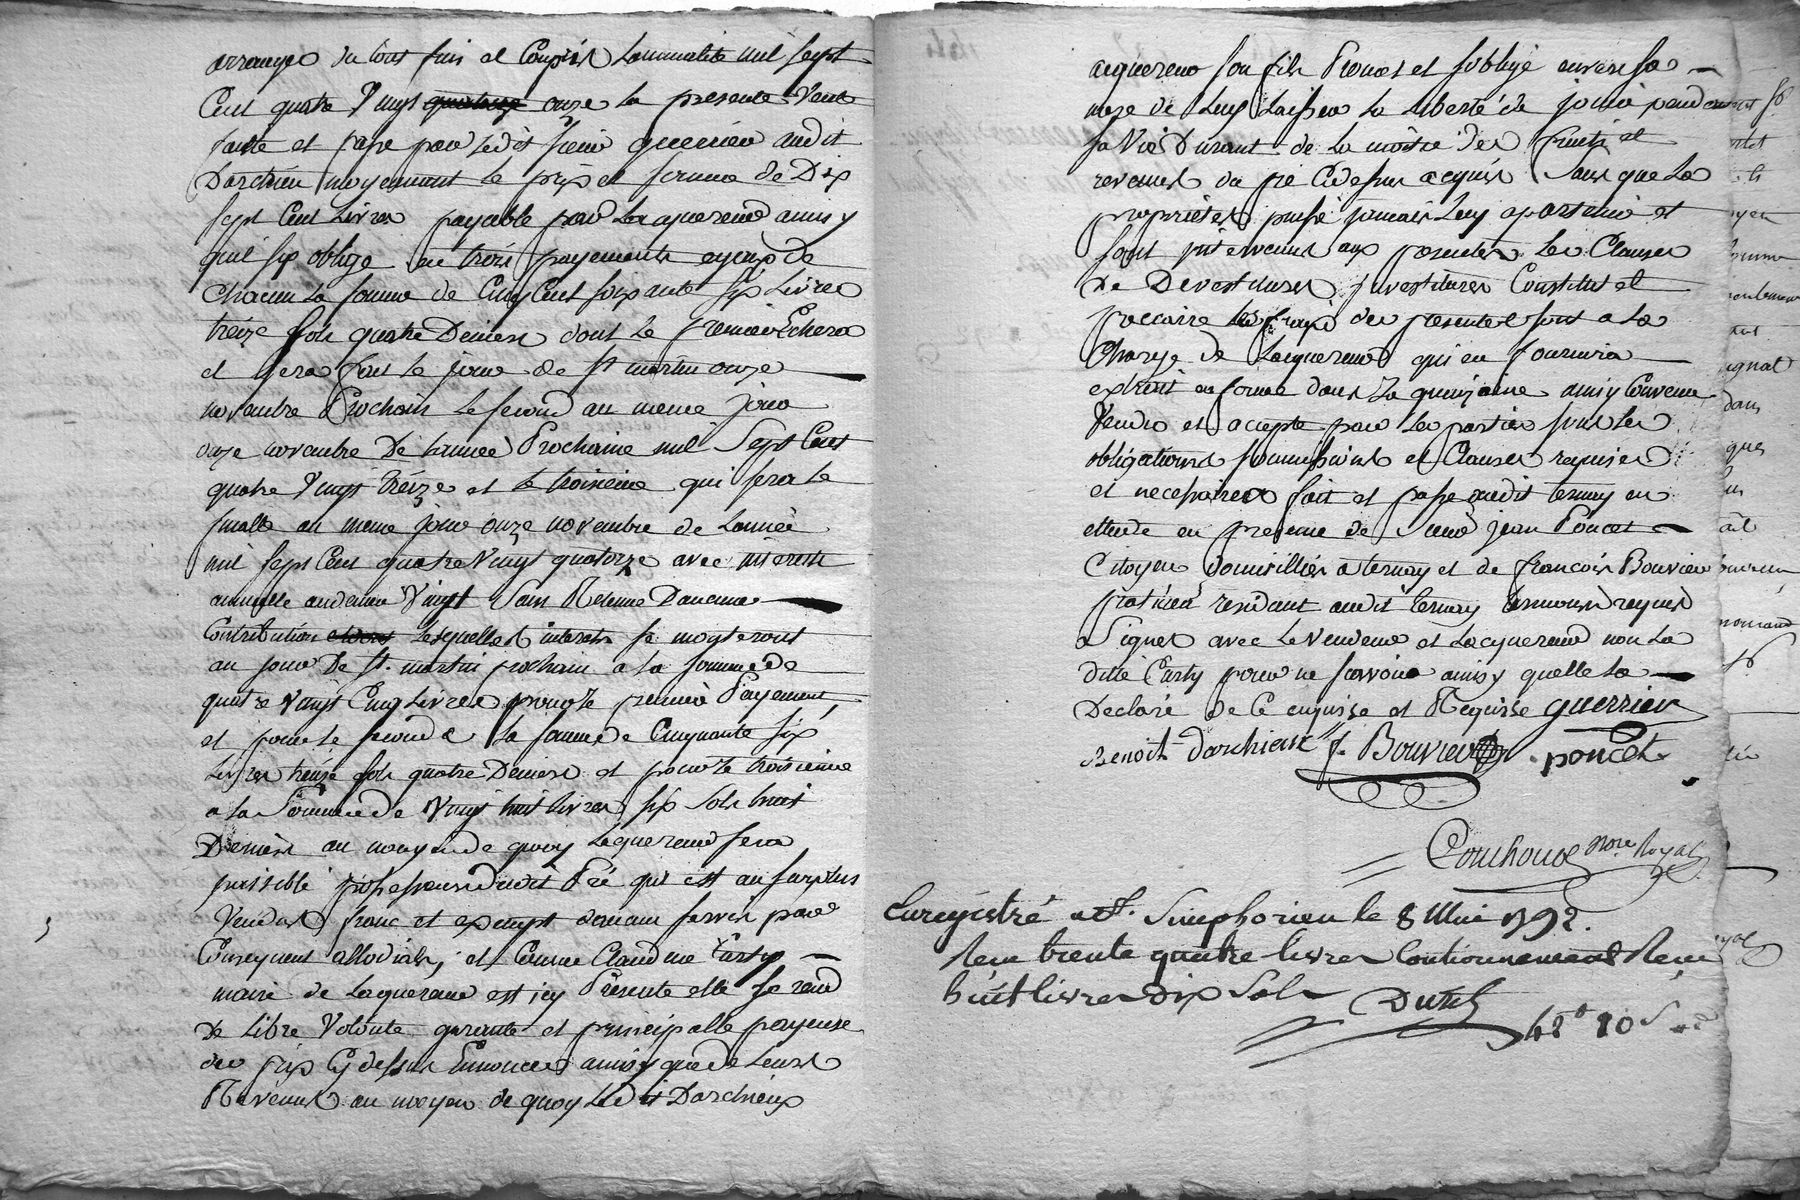 arrange du tout fini et Compris Lannualité mil sept
Cent quatre Vingt onze la presente Vente
faite et passé pour ledit sieur guerrier audit
Darchieu moyennant le prix et somme de Dix
sept Cent Livres payable par Lacquereur ainsy
quil s'y oblige en trois payements egaux de
Chacun La somme de Cinq Cent soixante six Livres
treize sols quatre Deniers dont Le premier Echera
et sera fait le jour de St martin onze
novembre Prochain Le second au meme jour
onze novembre De Lannée Prochaine mil Sept Cent
quatre Vingt treize et Le troisieme qui sera Le
au meme jour onze novembre de Lannée
mil sept Cent quatre Vingt quatorze avec interest
annuelle audenier Vingt Sans Retenue Daucune
Contribution Lesquelles interets se monteront
au jour De St. martin prochain a la somme de
quatre Vingt Cinq Livres pour le premier Payement
et pour le second a la somme de Cinquante six
Livres treize sols quatre Deniers et pour le troisieme
a la Somme de Vingt huit Livres six Sols huit
Deniers au moyen de quoy Lacquereur sera
paisible possesseur dudit Pré qui est au surplus
Vendu franc et exempt daucun servis par
Consequent allodial, et Comme Claudine Carty
maire de Lacquereur est icy Presente elle se rend
de Libre Volonté garante et principalle payeuse
des prix Cy dessus Ennoncés ainsy que de Leurs
Revenus au moyen de quoy Ledit Darchieux
acquereur son fils Promet et s'oblige envers sa
mere de Luy Laisser La Liberté de jouir pendant
sa Vie Durant de La moitié des fruits et
revenus du pré Cidessus acquis Sans que La
propriété puisse jamais Luy apartenir et
sont intervenus aux presentes Les Clauses
De Devestitures investitures Constitut et
precaire Les frais des presentes sont a La
Charge de Lacquereur qui en fournira
extrait en forme dans La quinzaine ainsy Convenu
Vendu et accepté par Les parties sous Les
obligations soumissions et Clauses requises
et necessaires fait et passé audit ternay en
etude en presence de Sieur jean Poncet
Citoyen domicillier a ternay et de françois Bouvier
praticien residant audit ternay temoins requis
a Signer avec Le Vendeur et Lacquereur non La
ditte Carty pour ne savoir ainsy quelle La
Declaré de Ce enquise et Requise guerrier
Benoit Darchieux f. Bouvier poncet
Couchoud Nore Royal
Enregistré a St. Simphorien le 8 Mai 1792.
Recu trente quatre livres Cautionnement Recu
huit livres dix Sols
Dutel
48# 10 s